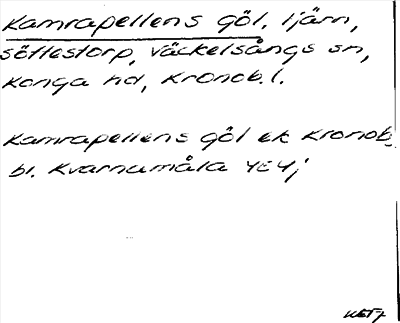 Kamrapellens göl, tjärn,
söftestorp, Väckelsångs sn,
Konga hd, Kronob. l.
Kamrapellens göl ek Kronob.
bl. Kvarnamåla 4E4j